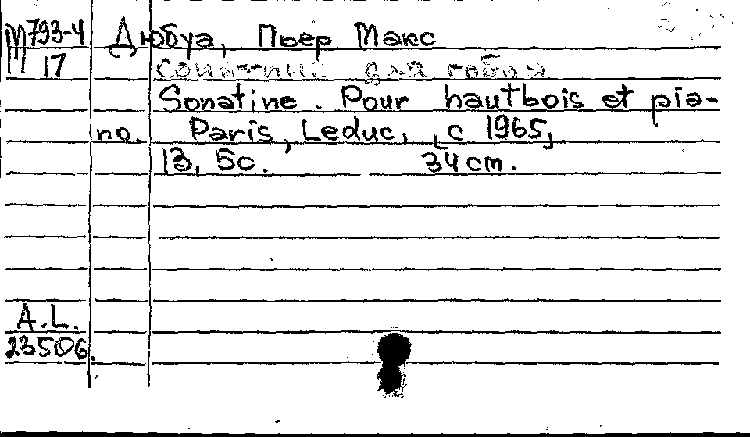 М793-4 Дюбуа, Пьер Макс
17 Сонатина для гобоя
Sonatine. Pour hautbois et pia-
no. Paris, Leduc, [c 1965]
13, 5c. 34cm.
A.L.
23506.